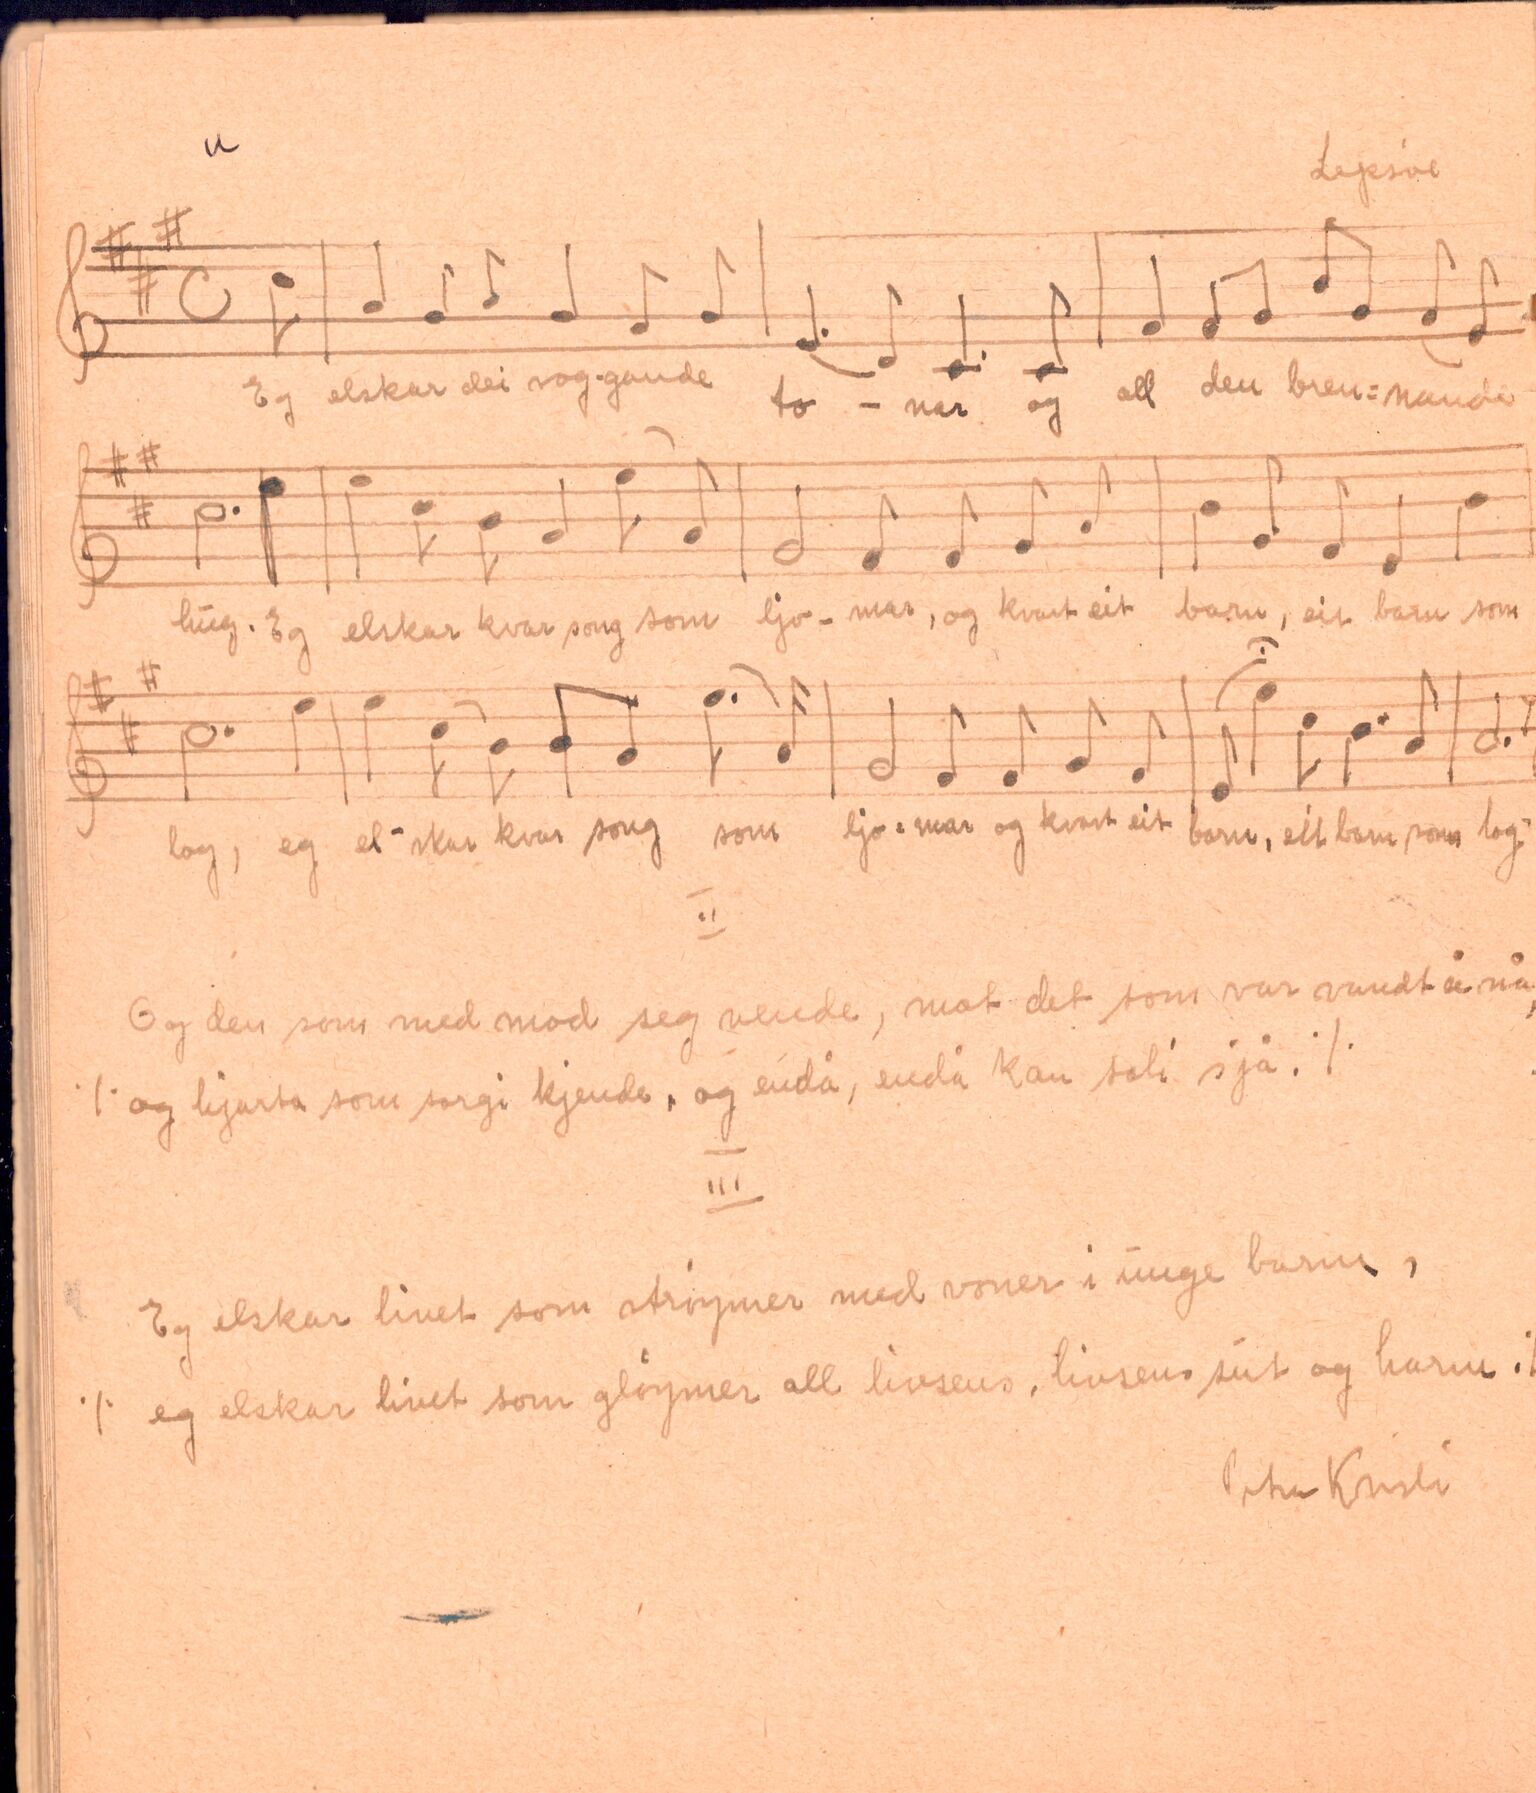 Eg elskar dei vog-gande to - nar og all den bren=nande
hug. Eg elskar kvar song som ljo - mar, og kvart eit barn, eit barn som
log, eg el-skar kvar song som ljo=mar og kvart eit barn, eit barn som log-
II
Og den som med mod seg vende, mot det som var vandt å nå,
·/· og hjarta som sorgi kjende, og endå, endå kan soli sjå. ·/·
III
Eg elskar livet som strøymer med voner i unge barm,
·/· eg elskar livet som gløymer all livsens, livsens sut og harm ·/·